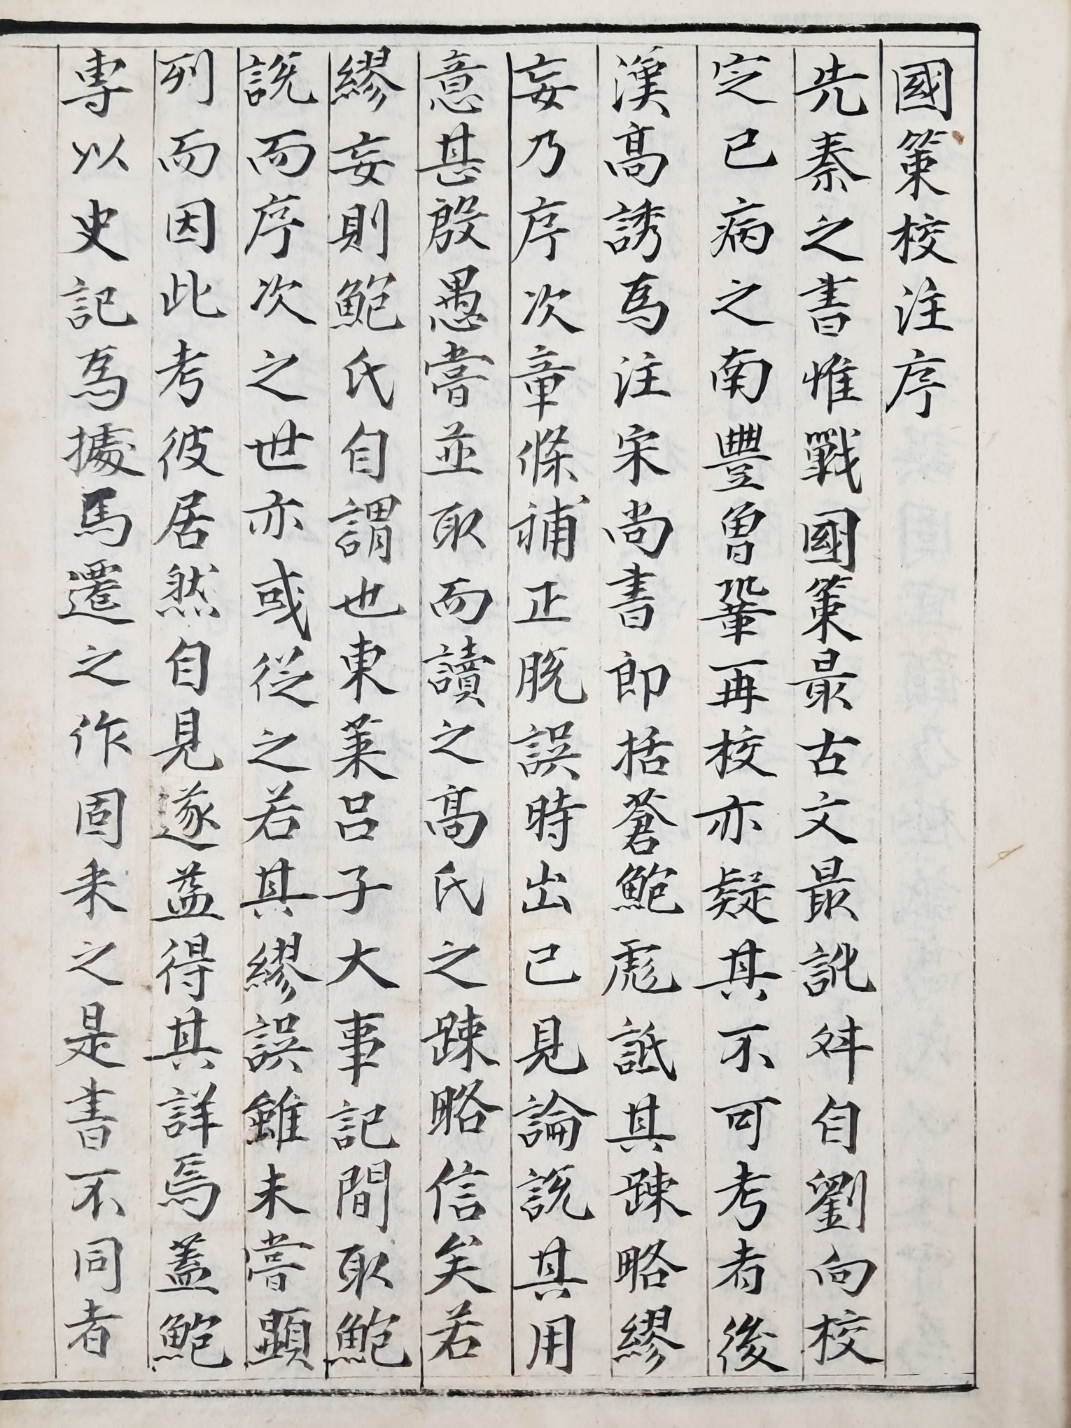 國策校注序
先秦之書惟戰國策最古文最訛舛自劉向校
定已病之南豐曾鞏再校亦疑其不可考者後
漢高誘為注宋尚書郎括蒼鮑彪詆其踈略繆
妄乃序次章條補正脫誤時出己見論說其用
意甚殷愚嘗並取而讀之高氏之踈略信矣若
繆妄則鮑氏自謂也東萊呂子大事記間取鮑
說而序次之世亦或從之若其繆誤雖未嘗顯
列而因此考彼居然自見遂益得其詳焉蓋鮑
專以史記為據馬遷之作固采之是書不同者